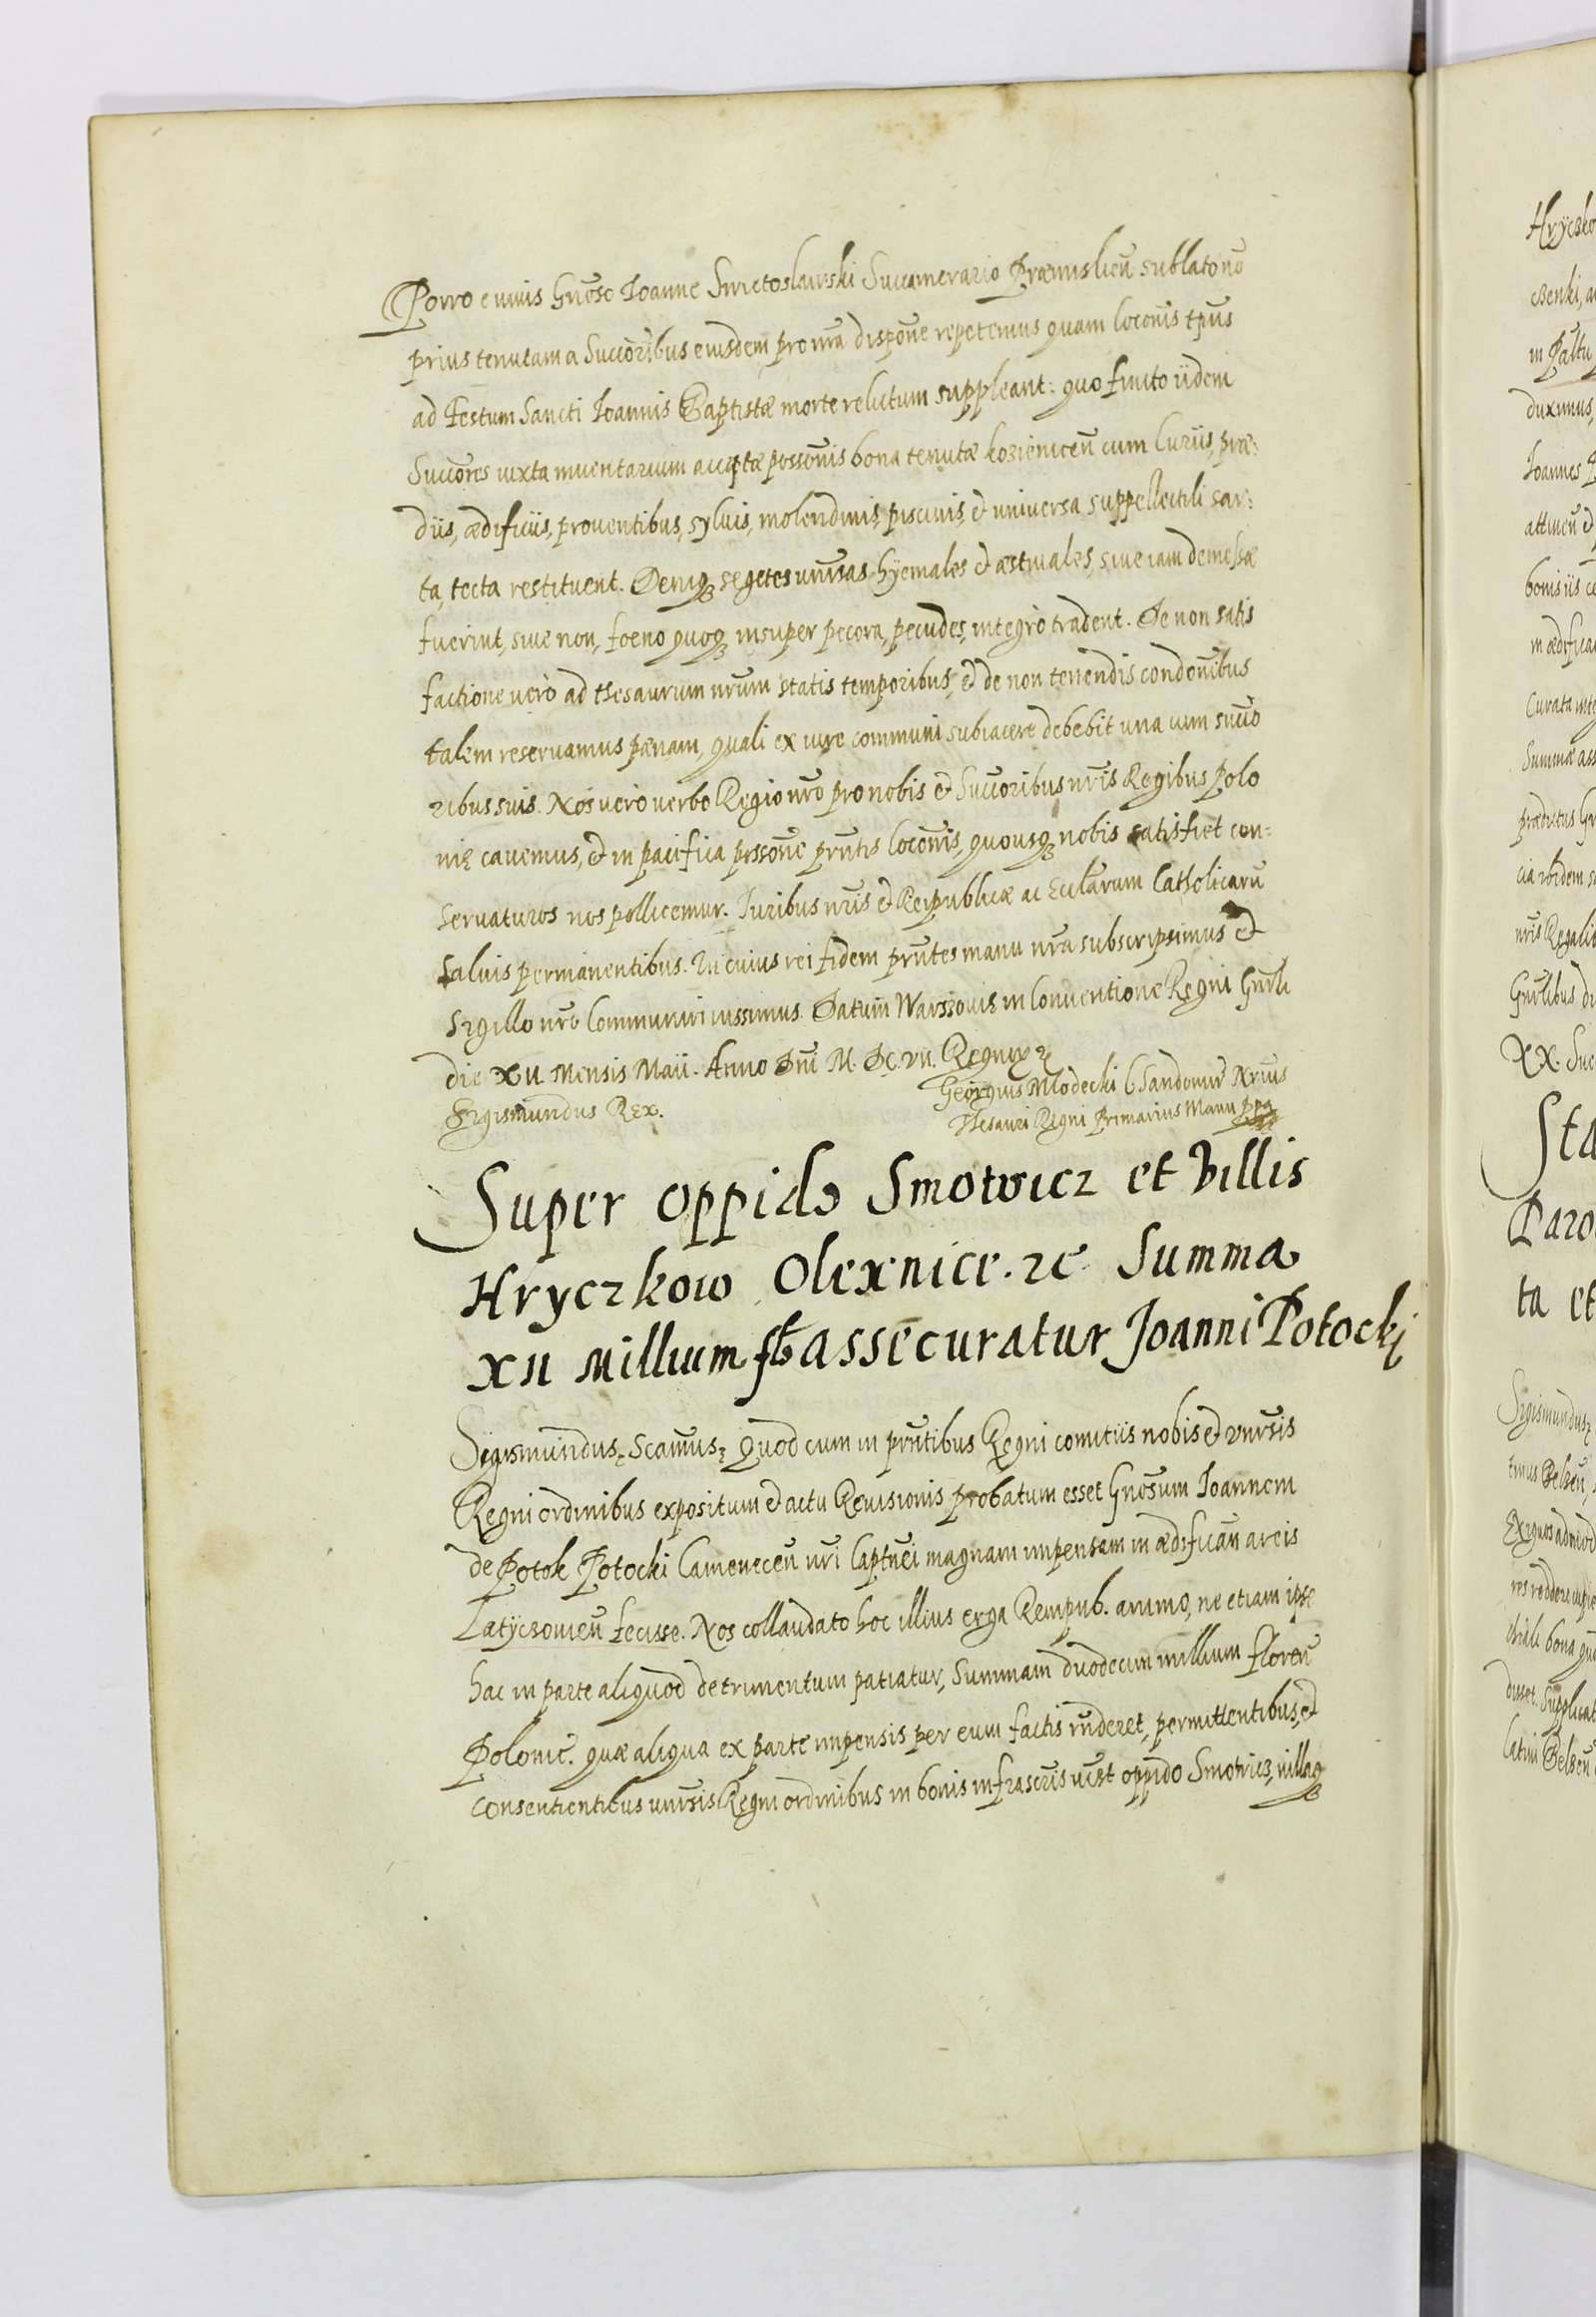 Porro e vivis Gnōso Ioanne Swietoslawski Succamerario Præmislien̄ sublato nō
prius tenutam a Succoribus eiusdem pro nrā dispōne repetemus quam locōnis tpus
ad Festum Sancti Ioannis Baptistæ morte relictum suppleant: quo finito iidem
Succōres iuxta inuentarium acceptæ possōnis bona tenutæ kozienicen̄ cum Curiis, præ:
diis, ædificiis, prouentibus, syluis, molendinis, piscinis, & vniuersa suppellectili sar:
ta, tecta restituent. Deniq₃ segetes vnīuersas hyemales & æstiuales, siue iam demessæ
fuerint, siue non, foeno quoq₃ insuper pecora, pecudes, integrò tradent. De non satis
factione verò ad thesaurum nrūm statis temporibus, & de non tenendis condōnibus
talem reseruamus pænam, quali ex iure communi subiacere debebit vna cum succo
ribus suis. Nos vero verbo Regio nrō pro nobis & Succoribus nrīs Regibus Polo
nię cauemus, & in pacifica possōne prn̄tis locōnis, quousq₃ nobis satisfiet con:
seruaturos nos pollicemur. Iuribus nrīs & Reipublicæ ac Ecclārum Catholicarū
saluis permanentibus. In cuius rei fidem prn̄tes manu nrā subscripsimus &
Sigillo nrō Communiri iussimus. Datum Warssouię in Conuentione Regni Gnrl̄i
die XII Mensis Maii. Anno Dnī M. DC. VII. Regnor₂ ꝛc
Georgius Mlodecki C Sandomir Nrius
Sigismundus Rex.
Thesauri Regni Primarius Manu ppa
Super oppido Smotricz et Villis
Hryczkow Olexnice. ꝛc Summa
XII Millium fl assecuratur Joanni Potocki
Sigismundus, Scāmus, Quod cum in prn̄tibus Regni comitiis nobis & vnīuersis
Regni ordinibus expositum & actu Reuisionis probatum esset Gnōsum Ioannem
de Potok Potocki Camenecen̄ nrī Captn̄ei magnam impensam in ædifican̄ arcis
Latyczouien̄ fecisse. Nos collaudato hoc illius erga Rempub. animo, ne etiam ipse
hac in parte aliquod detrimentum patiatur, Summam duodecim millium floren̄
Polonic. quæ aliqua ex parte impensis per eum factis rn̄deret, permittentibus, &
consentientibus vnīuersis Regni ordinibus in bonis infrascrīs vcst oppido Smotricz, villaq₃